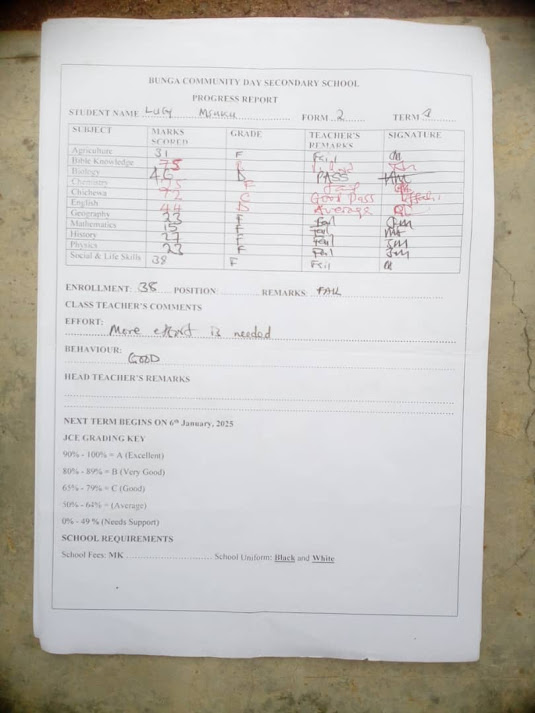 BUNGA COMMUNITY DAY SECONDARY SCHOOL
PROGRESS REPORT
STUDENT NAME FORM 2 TERM
SUBJECT MARKS SCORED GRADE TEACHER'S REMARKS SIGNATURE
Agriculture 31 F Fail
Bible Knowledge 75
Biology 46 D PASS
Chemistry F
Chichewa 72 C Good pass
English 44 D Average
Geography 23 F Fail
Mathematics 15 F Fail
History F Fail
Physics 23 F Fail
Social & Life Skills 38 F Fail
ENROLLMENT: 38 POSITION REMARKS: FAIL
CLASS TEACHER'S COMMENTS
EFFORT: More effort is needed
BEHAVIOUR: GOOD
HEAD TEACHER'S REMARKS
NEXT TERM BEGINS ON 6th January, 2025
JCE GRADING KEY
90% - 100% = A (Excellent)
80% - 89% = B (Very Good)
65% - 79% = C (Good)
50% - 64% = (Average)
0% - 49 % (Needs Support)
SCHOOL REQUIREMENTS
School Fees: MK School Uniform: Black and White